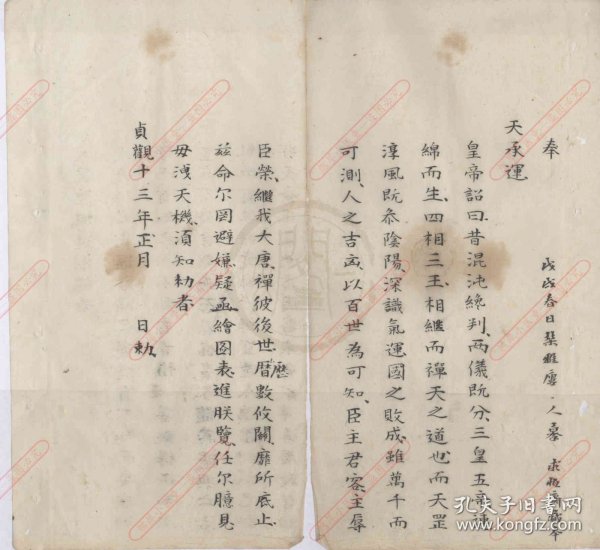 奉
天承運
皇帝詔曰昔混沌總判、两儀既分、三皇五帝
綿而生、四相三王、相繼而禪、天之道也、而天罡
淳風既叅陰陽、深識氣運國之敗成、雖萬千而
可測、人之吉凶、以百世為可知、臣主君容、主辱
臣榮、繼我大唐、禪彼後世、曆數攸關、靡所底止、
兹命尔罔避嫌疑、亟繪图表、進朕覽、任尔臆見
毋洩天機、須知勅者
貞觀十三年正月　日勅
戊戌春日
孔夫子旧书网
www.kongfz.com